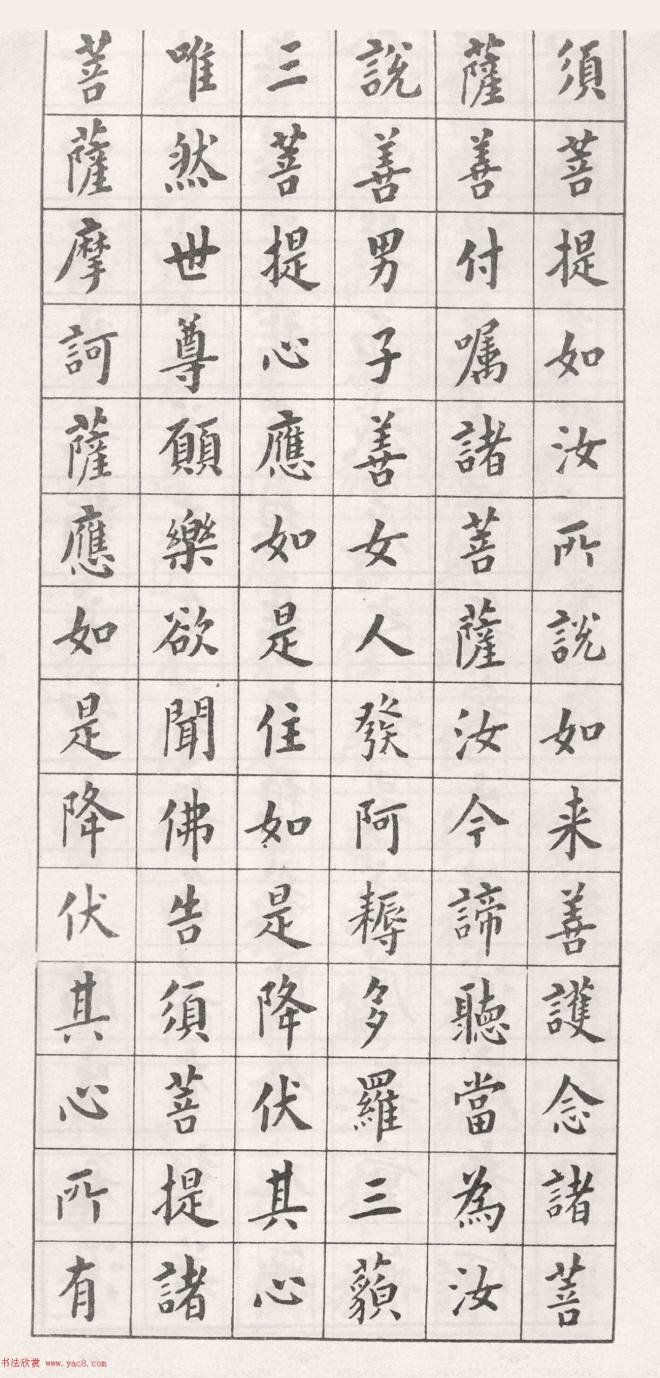 須菩提如汝所說如来善護念諸菩
薩善付嘱諸菩薩汝今諦聽當為汝
說善男子善女人發阿耨多羅三藐
三菩提心應如是住如是降伏其心
唯然世尊願樂欲聞佛告須菩提諸
菩薩摩訶薩應如是降伏其心所有
书法欣赏 www.yac8.com